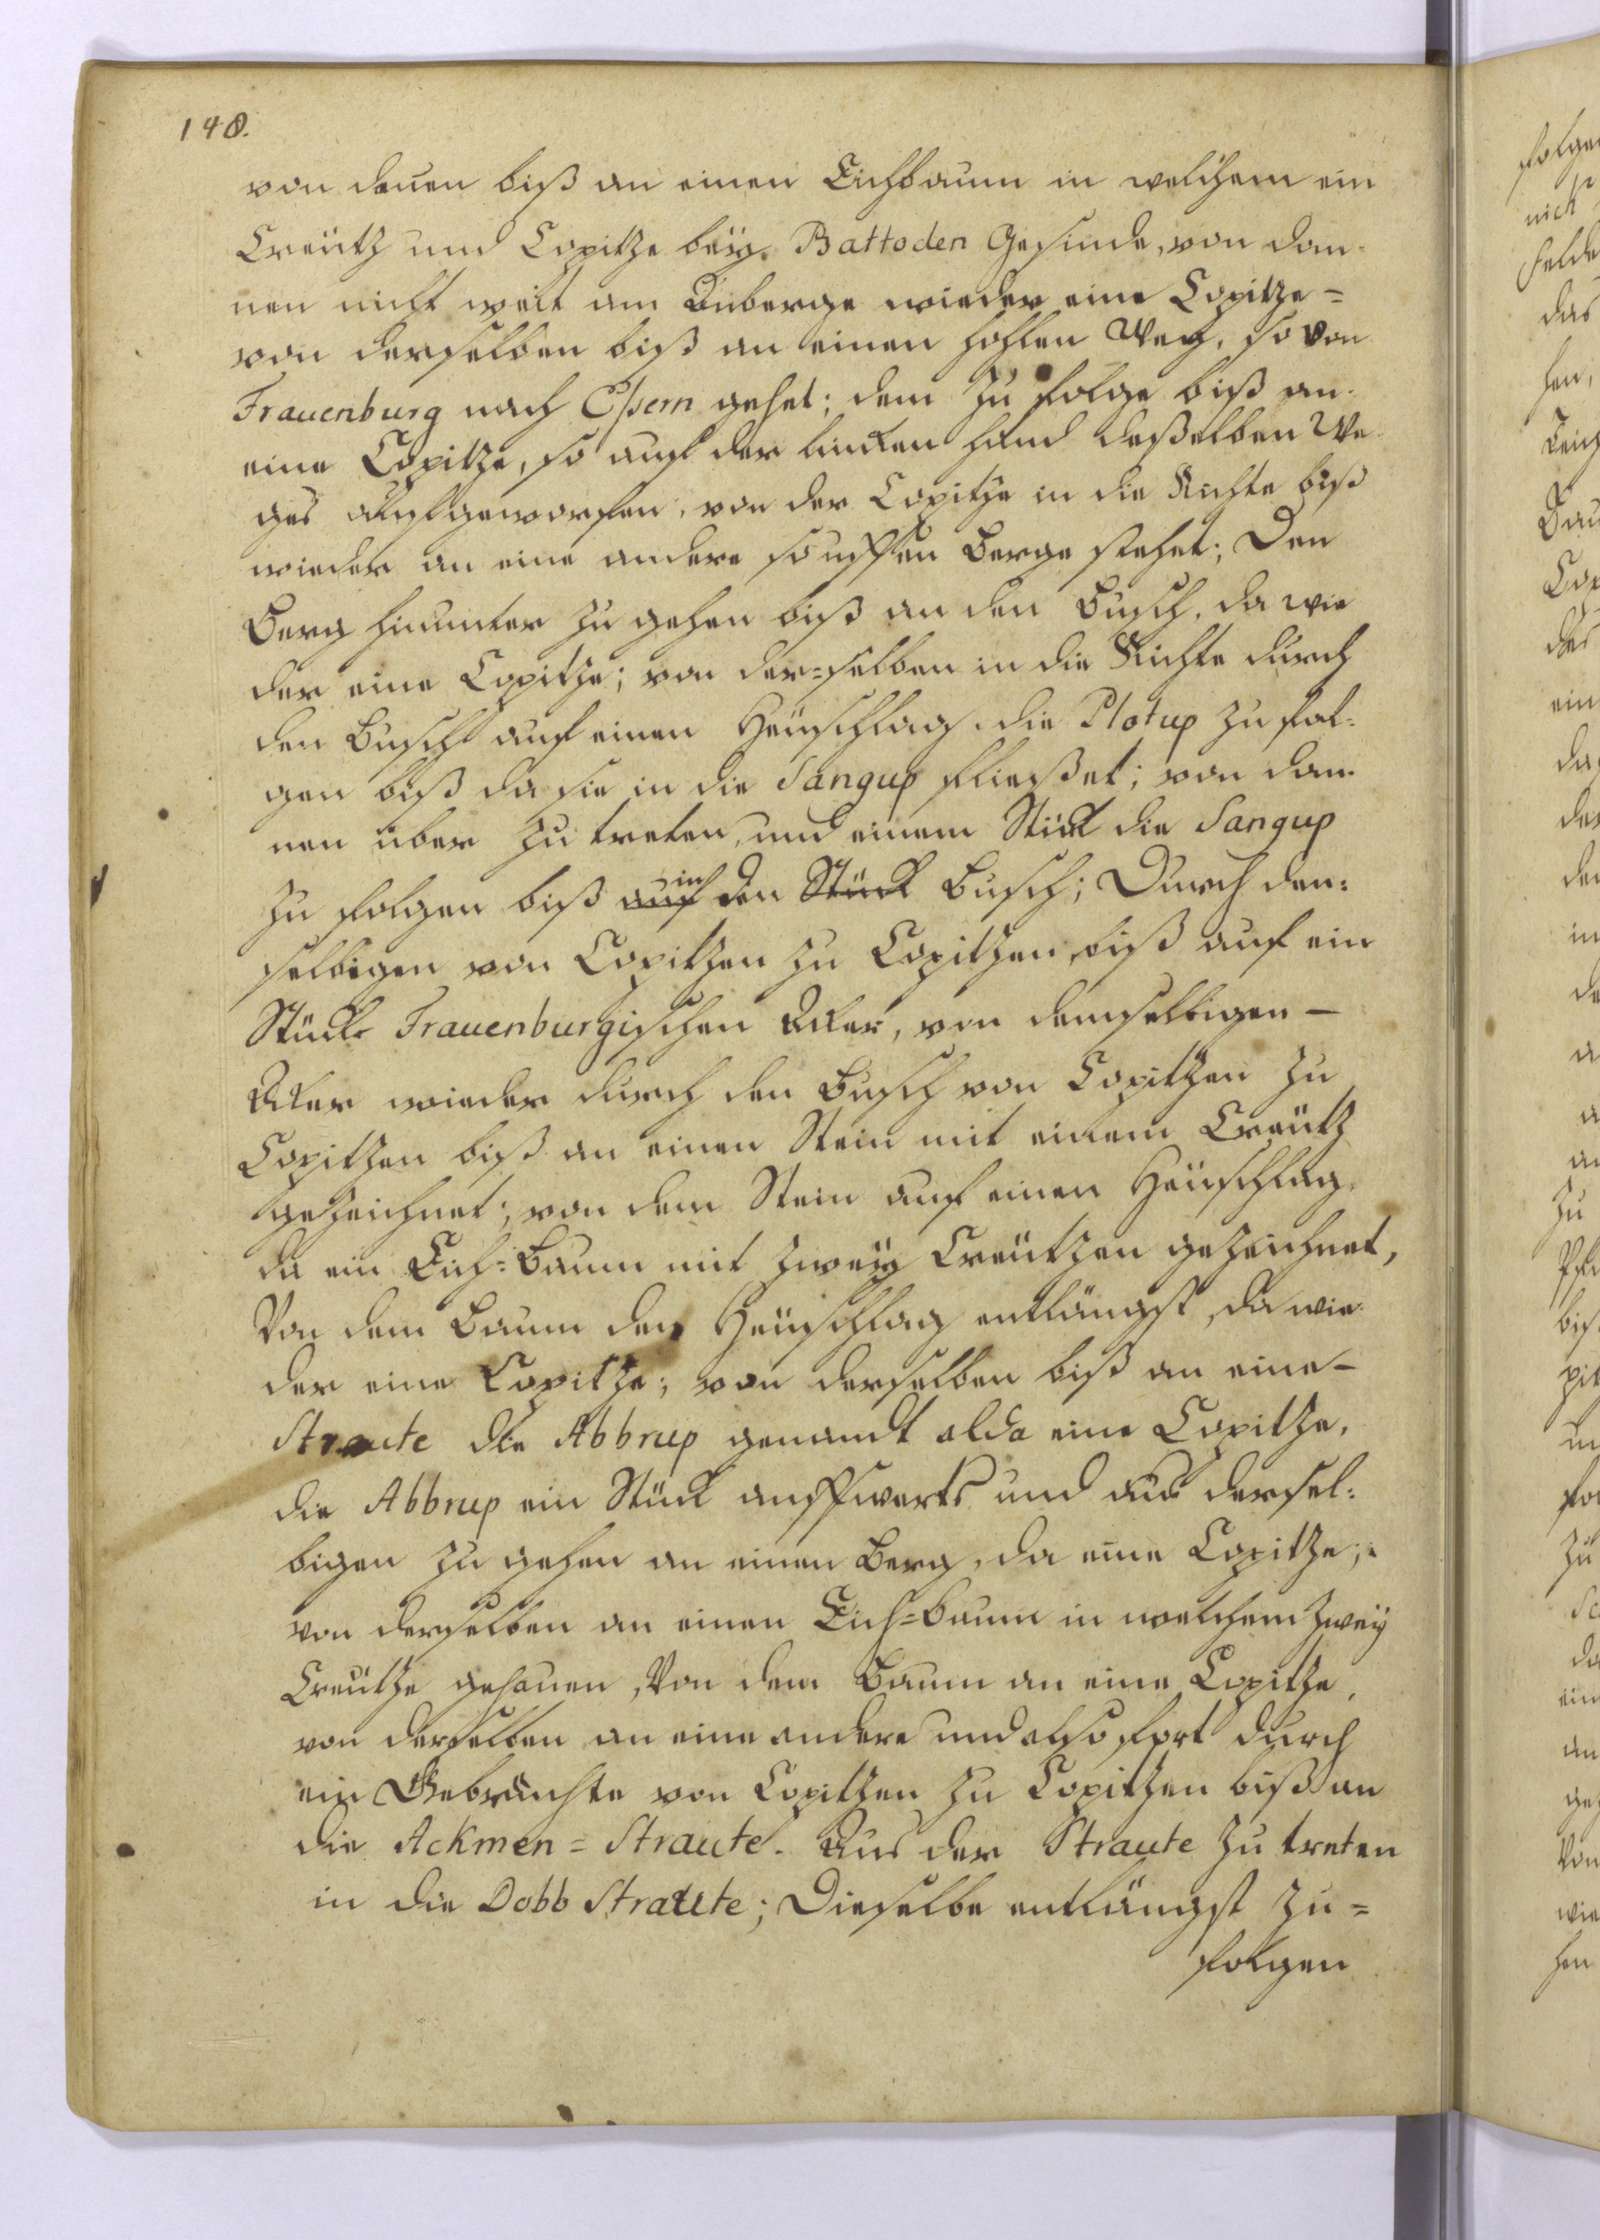 148.
von danen biß an einen Eichbaum in welchem ein
Creütz und Copitze beÿ. Battoden Gesinde, von dan-
nen nicht weit am Anberge wieder eine Copitze =
von derselben biß an einen hohlen Weg, so von
Frauenburg nach Eßern gehet; dem zu folge biß an
eine Copitze, so auf der lincken Hand deßelben We
ges aufgeworfen, von der Copitze in die Richte biß
wieder an eine andere so uffen Berge stehet; Den
Berg hinunter zu gehen biß an den Busch, da wie
der eine Copitze; von der=selben in die Richte durch
den Busch auf einen Heüschlag die Plotup zu fol-
gen biß da sie in die Sangup fließet; von dan-
nen über zu treten, und einem Stück die Sangup
zu folgen biß auf in den Stück Busch; Durch den:
selbigen von Copitzen zu Copitzen, biß auf ein
Stück Frauenburgischen Acker, von demselbigen —
Acker wieder durch den Busch von Copitzen zu
Copitzen biß an einen Stein mit einem Creütz
gezeichnet; von dem Stein auf einen Heüschlag,
da ein Eich=Baum mit zweÿ Creützen gezeichnet,
Von dem Baum den Heüschlag entlängst, da wie-
der eine Copitze; von derselben biß an eine —
Straute die Abbrup genandt alda eine Copitze,
die Abbrup ein Stück auffwerts und aus dersel:
bigen zu gehen an einen Berg, da eine Copitze;
von derselben an einen Eich=Baum in welchem zweÿ
Creütze gehauen, Von dem Baum an eine Copitze,
von derselben an eine andere und also fort durch
ein Gebräuchte von Copitzen zu Copitzen biß an
die Ackmen = Straute. Aus der Straute zu treten
in die Dobb Straute; Dieselbe entlängst zu =
folgen